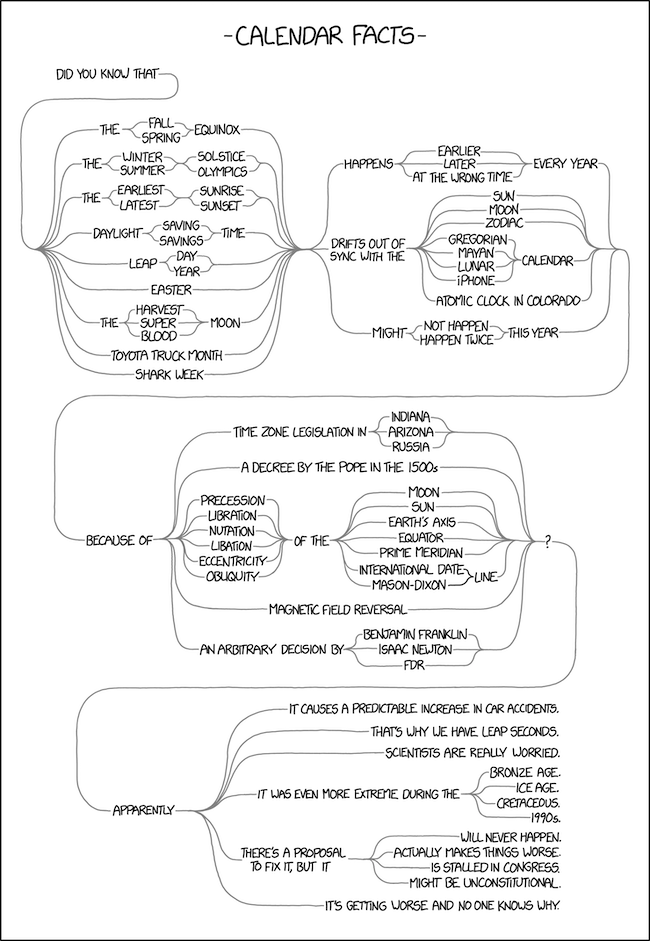 -CALENDAR FACTS-
DID YOU KNOW THAT
THE FALL SPRING EQUINOX
THE WINTER SUMMER SOLSTICE OLYMPICS
THE EARLIEST LATEST SUNRISE SUNSET
DAYLIGHT SAVING SAVINGS TIME
LEAP DAY YEAR
EASTER
THE HARVEST SUPER BLOOD MOON
TOYOTA TRUCK MONTH
SHARK WEEK
HAPPENS EARLIER LATER AT THE WRONG TIME EVERY YEAR
DRIFTS OUT OF
SYNC WITH THE
SUN
MOON
ZODIAC
GREGORIAN
MAYAN
LUNAR
iPHONE
CALENDAR
ATOMIC CLOCK IN COLORADO
MIGHT NOT HAPPEN HAPPEN TWICE THIS YEAR
BECAUSE OF
TIME ZONE LEGISLATION IN INDIANA ARIZONA RUSSIA
A DECREE BY THE POPE IN THE 1500s
PRECESSION
LIBRATION
NUTATION
LIBATION
ECCENTRICITY
OBLIQUITY
OF THE
MOON
SUN
EARTH'S AXIS
EQUATOR
PRIME MERIDIAN
INTERNATIONAL DATE
MASON-DIXON
LINE
MAGNETIC FIELD REVERSAL
AN ARBITRARY DECISION BY BENJAMIN FRANKLIN ISAAC NEWTON FDR
?
APPARENTLY
IT CAUSES A PREDICTABLE INCREASE IN CAR ACCIDENTS.
THAT'S WHY WE HAVE LEAP SECONDS.
SCIENTISTS ARE REALLY WORRIED.
IT WAS EVEN MORE EXTREME DURING THE
BRONZE AGE.
ICE AGE.
CRETACEOUS.
1990s.
THERE'S A PROPOSAL
TO FIX IT, BUT IT
WILL NEVER HAPPEN.
ACTUALLY MAKES THINGS WORSE.
IS STALLED IN CONGRESS.
MIGHT BE UNCONSTITUTIONAL.
IT'S GETTING WORSE AND NO ONE KNOWS WHY.